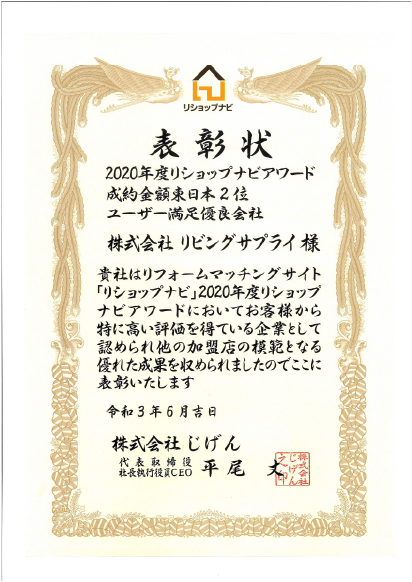 リショップナビ
表彰状
2020年度リショップナビアワード
成約金額東日本2位
ユーザー満足優良会社
株式会社 リビングサプライ 様
貴社はリフォームマッチングサイト
「リショップナビ」2020年度リショップ
ナビアワードにおいてお客様から
特に高い評価を得ている企業として
認められ他の加盟店の模範となる
優れた成果を収められましたのでここに
表彰いたします
令和3年6月吉日
株式会社じげん
代表取締役
社長執行役員CEO 平尾 丈
株式会社
じげん